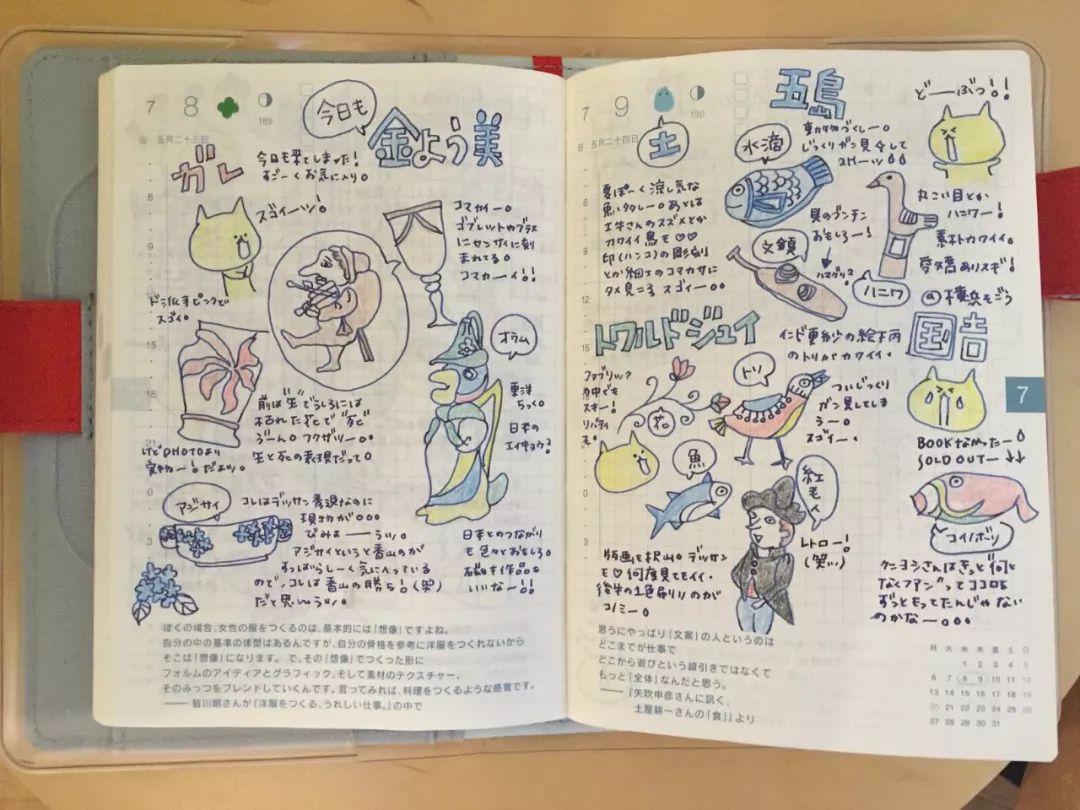 7 8
189
金 五月二十三日
今日も
金よう美
ガレ
今日も来てしまった!
すごーくお気に入り。
スゴイーッ!
コマカイー。
ゴブレットやグラス
にセンサイに刻
まれてる。
コマカーイ!!
ド派手ピンクで
スゴイ。
オラム
東洋
ちっく。
日本の
エイキョウ?
前は"生"でうしろには
枯れた花で"死"
うーん。フクザツー。。
生と死の表現だって。
けどPHOTOより
実物ー!だよッ。
アジサイ
コレはデッサン秀逸なのに
現物が。。。
びみょーーうッ。
アジサイというと香山のが
すっばらしーく気に入っている
ので、コレは香山の勝ち!(笑)
だと思いうッ。
日本とのつながり
も色々とおもしろ。
磁キ作品も
いいなー!!
ぼくの場合、女性の服をつくるのは、基本的には「想像」ですよね。
自分の中の基準の体型はあるんですが、自分の骨格を参考に洋服をつくれないから
そこは「想像」になります。で、その「想像」でつくった形に
フォルムのアイディアとグラフィック、そして素材のテクスチャー、
そのみっつをブレンドしていくんです。言ってみれば、料理をつくるような感覚です。
——皆川明さんが『洋服をつくる、うれしい仕事。』の中で
7 9
190
五月二十四日
土
五島
どーーぶつ!!
水滴
動物づくしー。
じっくりガン見々して
夏ぽーく涼し気な
魚いタクレー。あとは
スズメとか
カワイイ鳥も♡♡
印(ハンコ)の彫刻り
とか細工のコマカサに
タメ息こる スゴイー。。
貝のゴンテン
おもしろー!
ハマグリ?
文鎮
丸こい目とか
ハニワー!
素朴カワイイ。
ハニワ
@横浜そごう
トワルドジュイ
国吉
インド更紗の絵下丙
のトリがカワイイ。
ファブリック?
の中でも
スキー!
リバティ
花
トリ
ついじっくり
ガン見してしま
うー。
スゴイー。
魚
BOOKなかったー
SOLD OUTー↓↓
紅毛人
レトロー!
(笑ッ)
コイノボリ
版画も沢山。デッサン
も♡何度見てもイイ。
後半の1色刷りのが
コノミー。
クニヨシさんはきっと何と
なくファン"ってココロを
ずっともってたんじゃない
のかなー。。。
思うにやっぱり「文案」の人というのは
どこまでが仕事で
どこから遊びという線引きではなくて
もっと「全体」なんだと思う。
——『矢吹申彦さんに訊く、
土屋耕一さんの「食」』より
7
月 火 水 木 金 土 日
1 2 3 4 5
6 7 8 9 10 11 12
13 14 15 16 17 18 19
20 21 22 23 24 25 26
27 28 29 30 31